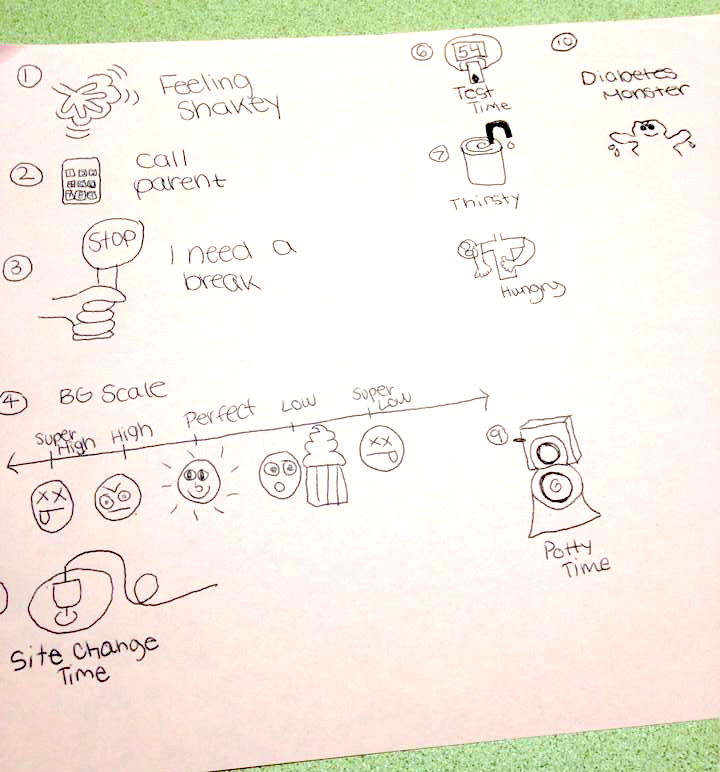 1
Feeling
Shakey
2
Call
parent
3
STOP
I need a
break
4
BG Scale
Super
High
High
Perfect
Low
Super
Low
Site Change
Time
6
54
Test
Time
7
Thirsty
8
Hungry
9
Potty
Time
10
Diabetes
Monster